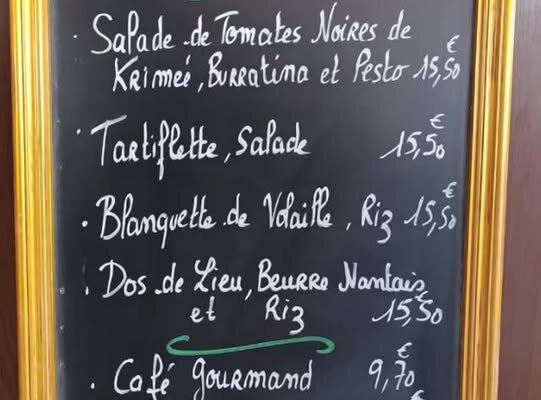 · Salade de Tomates Noires de
Krimeé, Burratina et Pesto 15,50 €
· Tartiflette, Salade 15,50 €
· Blanquette de Volaille, Riz 15,50 €
· Dos de Lieu, Beurre Nantais
et Riz 15,50
· Café gourmand 9,70 €
€